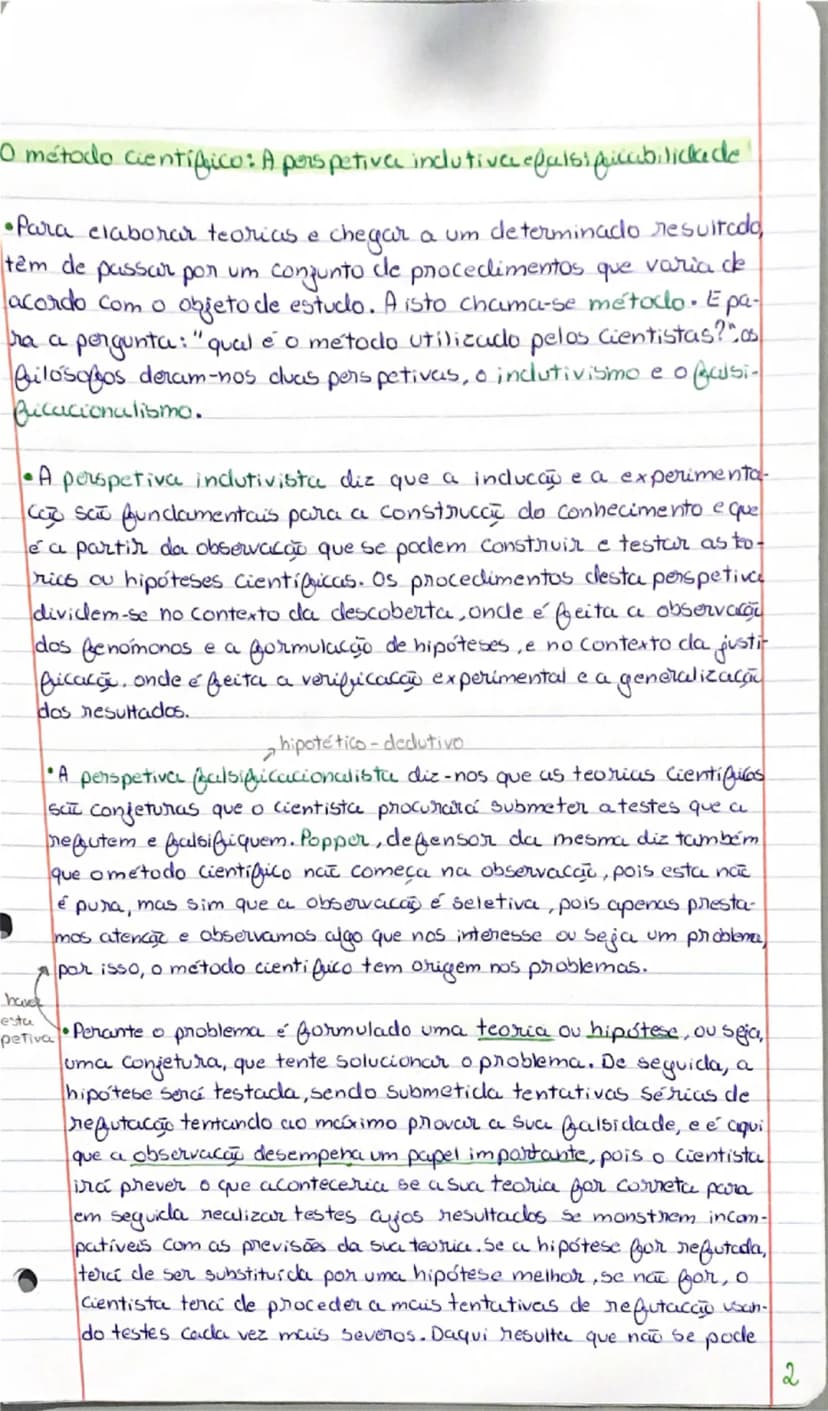 O método científico: A perspetiva indutiva e falsificabilidade
•Para elaborar teorias e chegar a um determinado resultado,
têm de passar por um conjunto de procedimentos que varia de
acordo com o objeto de estudo. A isto chama-se método. E pa-
ra a pergunta: "qual é o método utilizado pelos cientistas?", os
filósofos deram-nos duas perspetivas, o indutivismo e o falsi-
ficacionalismo.
•A perspetiva indutivista diz que a inducão e a experimenta-
ção são fundamentais para a construcão do conhecimento e que
é a partir da observação que se podem construir e testar as to-
rias ou hipóteses científicas. Os procedimentos desta perspetiva
dividem-se no contexto da descoberta, onde é feita a observação
dos fenómonos e a formulacção de hipóteses, e no contexto da justi-
ficação, onde é feita a verificacão experimental e a generalização
dos resultados.
hipotético-dedutivo
•A perspetiva falsificacionalista diz-nos que as teorias científicas
são conjeturas que o cientista procurará submeter a testes que a
refutem e falsifiquem. Popper, defensor da mesma diz também
que o método científico não começa na observacção, pois esta não
é pura, mas sim que a observacão é seletiva, pois apenas presta-
mos atenção e observamos algo que nos interesse ou seja um problema,
por isso, o método científico tem origem nos problemas.
esta
petiva
•Perante o problema é formulado uma teoria ou hipótese, ou seja,
uma conjetura, que tente solucionar o problema. De seguida, a
hipótese será testada, sendo submetida tentativas sérias de
refutacção tentando ao máximo provar a sua falsidade, e é aqui
que a observacão desempenha um papel importante, pois o cientista
irá prever o que aconteceria se a sua teoria for correta para
em seguida realizar testes cujos resultados se monstrem incom-
patíveis com as previsões da sua teoria. Se a hipótese for refutada,
terá de ser substituída por uma hipótese melhor, se não for, o
cientista terá de proceder a mais tentativas de refutacção usan-
do testes cada vez mais severos. Daqui resulta que não se pode
2